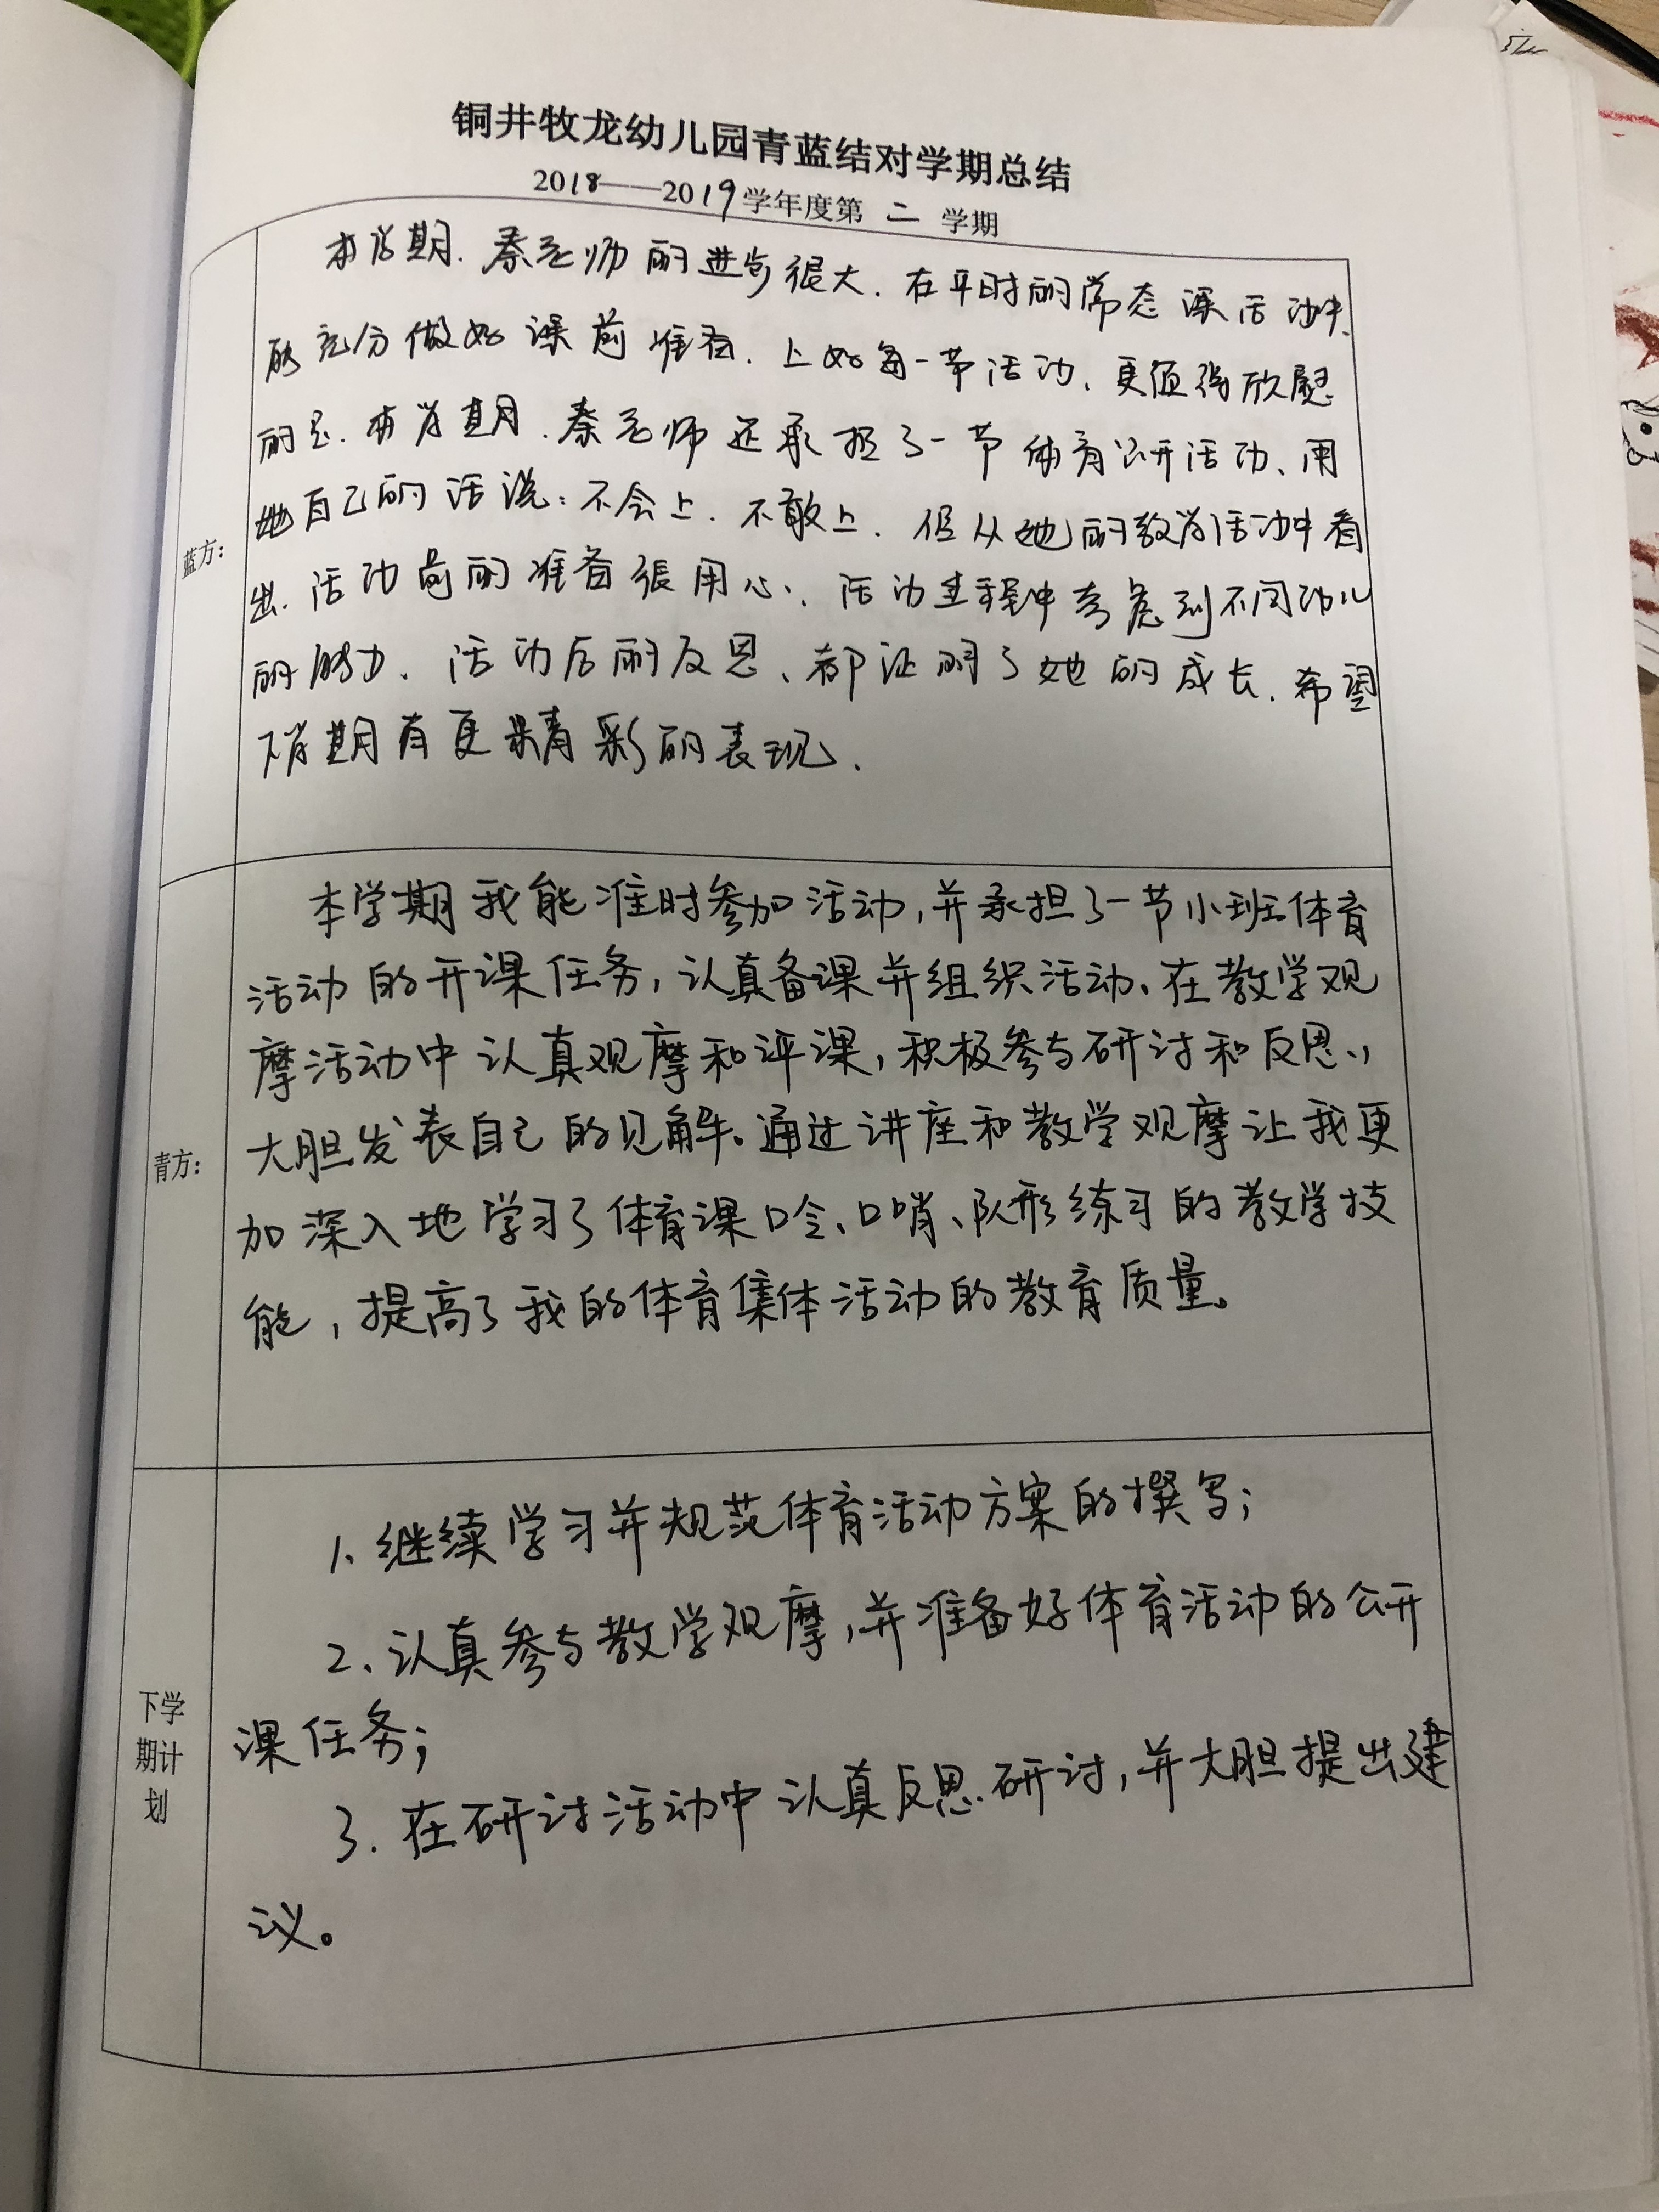 铜井牧龙幼儿园青蓝结对学期总结
2018——2019学年度第 二 学期
蓝方:
本学期. 秦老师的进步很大. 在平时的常态课活动中.
能充分做好课前准备. 上好每一节活动. 更值得欣慰
的是. 本学期. 秦老师还承担了一节体育公开活动、用
她自己的话说: 不会上. 不敢上. 但从她的教学活动中看
出. 活动前的准备很用心、活动过程中考虑到不同幼儿
的能力. 活动后的反思、都证明了她的成长. 希望
下学期有更精彩的表现.
青方:
本学期我能准时参加活动,并承担了一节小班体育
活动的开课任务,认真备课并组织活动、在教学观
摩活动中认真观摩和评课,积极参与研讨和反思,
大胆发表自己的见解。通过讲座和教学观摩让我更
加深入地学习了体育课口令、口哨、队形练习的教学技
能,提高了我的体育集体活动的教育质量。
下学
期计
划
1、继续学习并规范体育活动方案的撰写;
2、认真参与教学观摩,并准备好体育活动的公开
课任务;
3. 在研讨活动中认真反思.研讨,并大胆提出建
议。